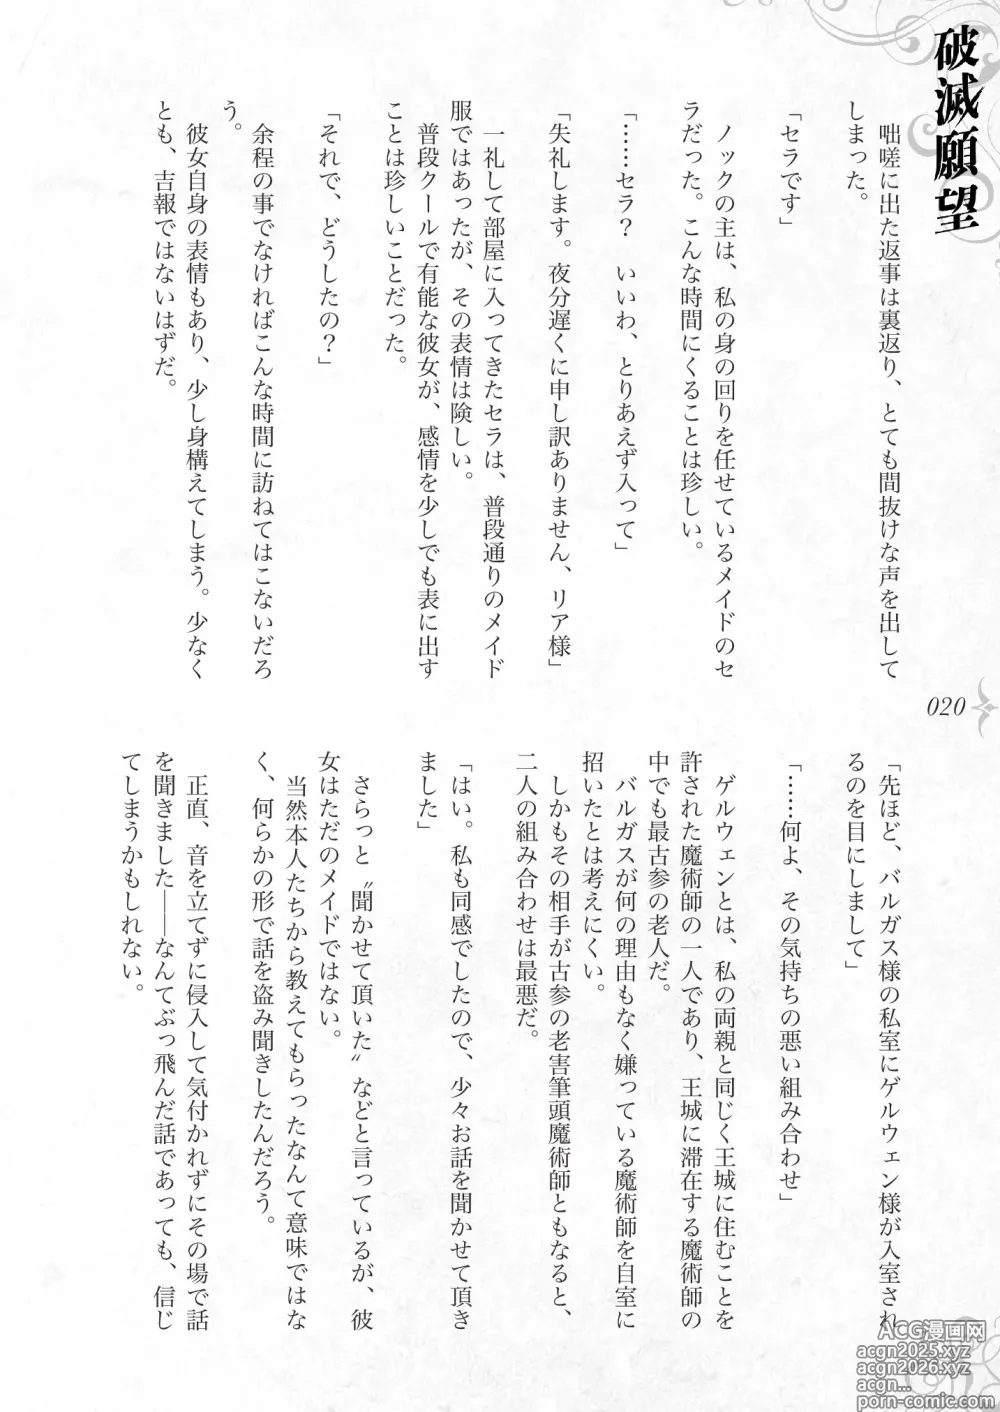 破滅願望
　咄嗟に出た返事は裏返り、とても間抜けな声を出して
しまった。
「セラです」
　ノックの主は、私の身の回りを任せているメイドのセ
ラだった。こんな時間にくることは珍しい。
「……セラ？　いいわ、とりあえず入って」
「失礼します。夜分遅くに申し訳ありません、リア様」
　一礼して部屋に入ってきたセラは、普段通りのメイド
服ではあったが、その表情は険しい。
　普段クールで有能な彼女が、感情を少しでも表に出す
ことは珍しいことだった。
「それで、どうしたの？」
　余程の事でなければこんな時間に訪ねてはこないだろ
う。
　彼女自身の表情もあり、少し身構えてしまう。少なく
とも、吉報ではないはずだ。
020
「先ほど、バルガス様の私室にゲルウェン様が入室され
るのを目にしまして」
「……何よ、その気持ちの悪い組み合わせ」
　ゲルウェンとは、私の両親と同じく王城に住むことを
許された魔術師の一人であり、王城に滞在する魔術師の
中でも最古参の老人だ。
　バルガスが何の理由もなく嫌っている魔術師を自室に
招いたとは考えにくい。
　しかもその相手が古参の老害筆頭魔術師ともなると、
二人の組み合わせは最悪だ。
「はい。私も同感でしたので、少々お話を聞かせて頂き
ました」
　さらっと〝聞かせて頂いた〟などと言っているが、彼
女はただのメイドではない。
　当然本人たちから教えてもらったなんて意味ではな
く、何らかの形で話を盗み聞きしたんだろう。
　正直、音を立てずに侵入して気付かれずにその場で話
を聞きました――なんてぶっ飛んだ話であっても、信じ
てしまうかもしれない。
ACG漫画网
acgn2025.xyz
acgn2026.xyz
acgn...
porn-comic.com